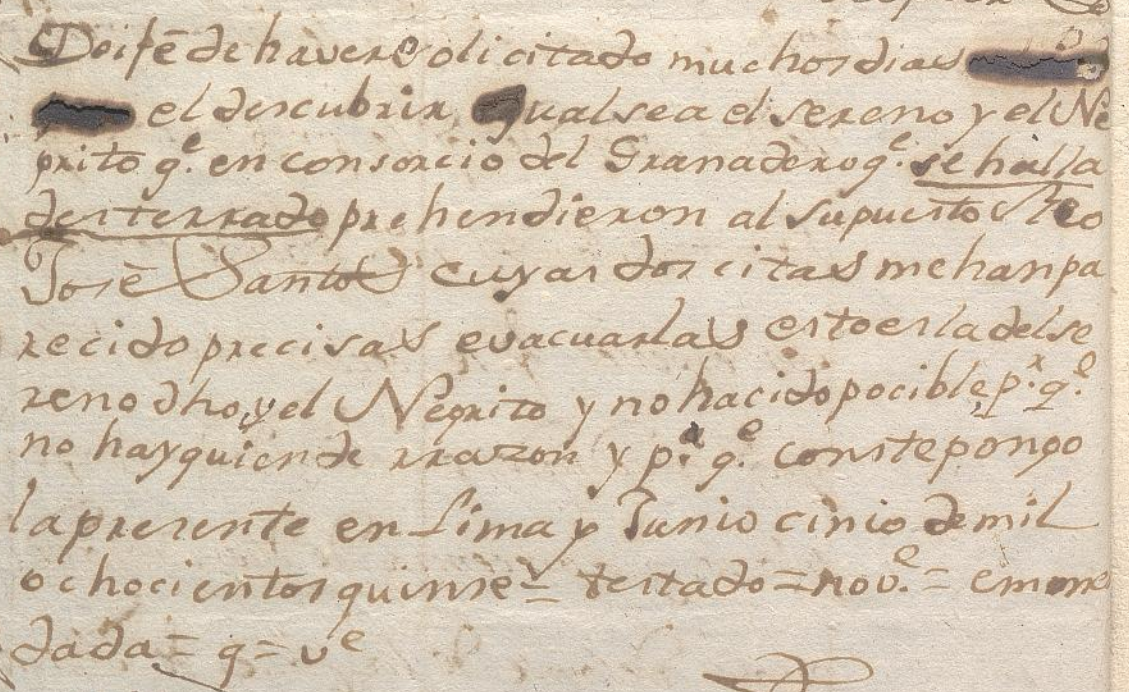 Doi fé de haver solicitado muchos dias
el descubrir, qual sea el sereno y el Ne
grito q.e en consorcio del Granadero q.e se halla
desterrado prehendieron al supuesto Reo
José Santos cuyas dos citas me han pa
recido precisas evacuarlas esto es la del se
reno dho, y el Negrito y no ha cido pocible, p.r q.e
no hay quien de rrazon y p.a q.e conste pongo
la presente en Lima y Junio cinio de mil
ochocientos quinse = testado = nov.e = emme
dada = q = v e